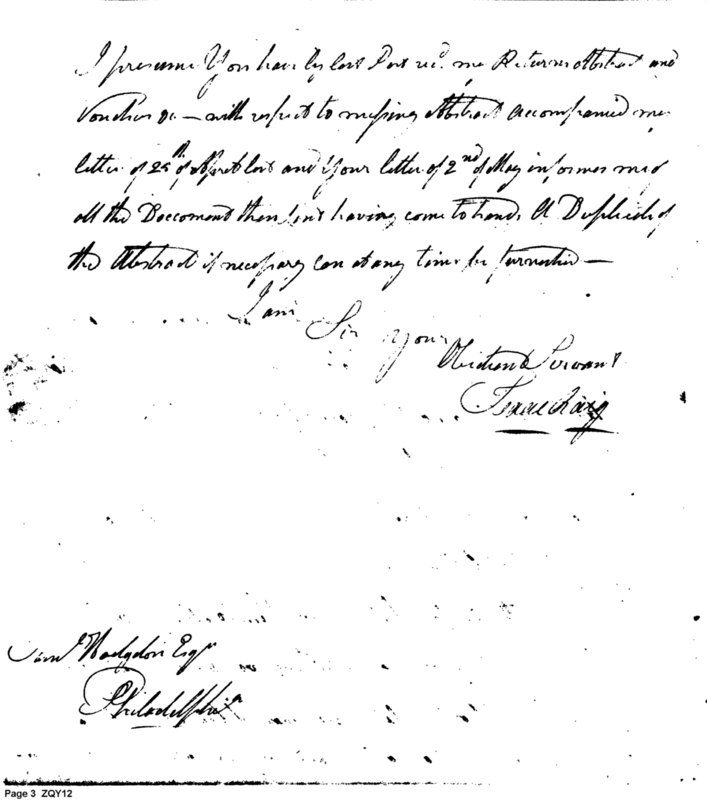 I presume You have by last Post rec.d my Returns Abstract and
Vouchers &c — with respect to missing Abstract accompanied my
letter of 25th of April last and Your letter of 2nd of May informes me of
all the Doccoment then sent having come to hand. A Duplicate of
the Abstract if necessary can at any time be furnished —
I am Sir Your
Obedient Servant
Isaac Craig
Saml Hodgdon Esqr
Philadelphia
Page 3 ZQY12